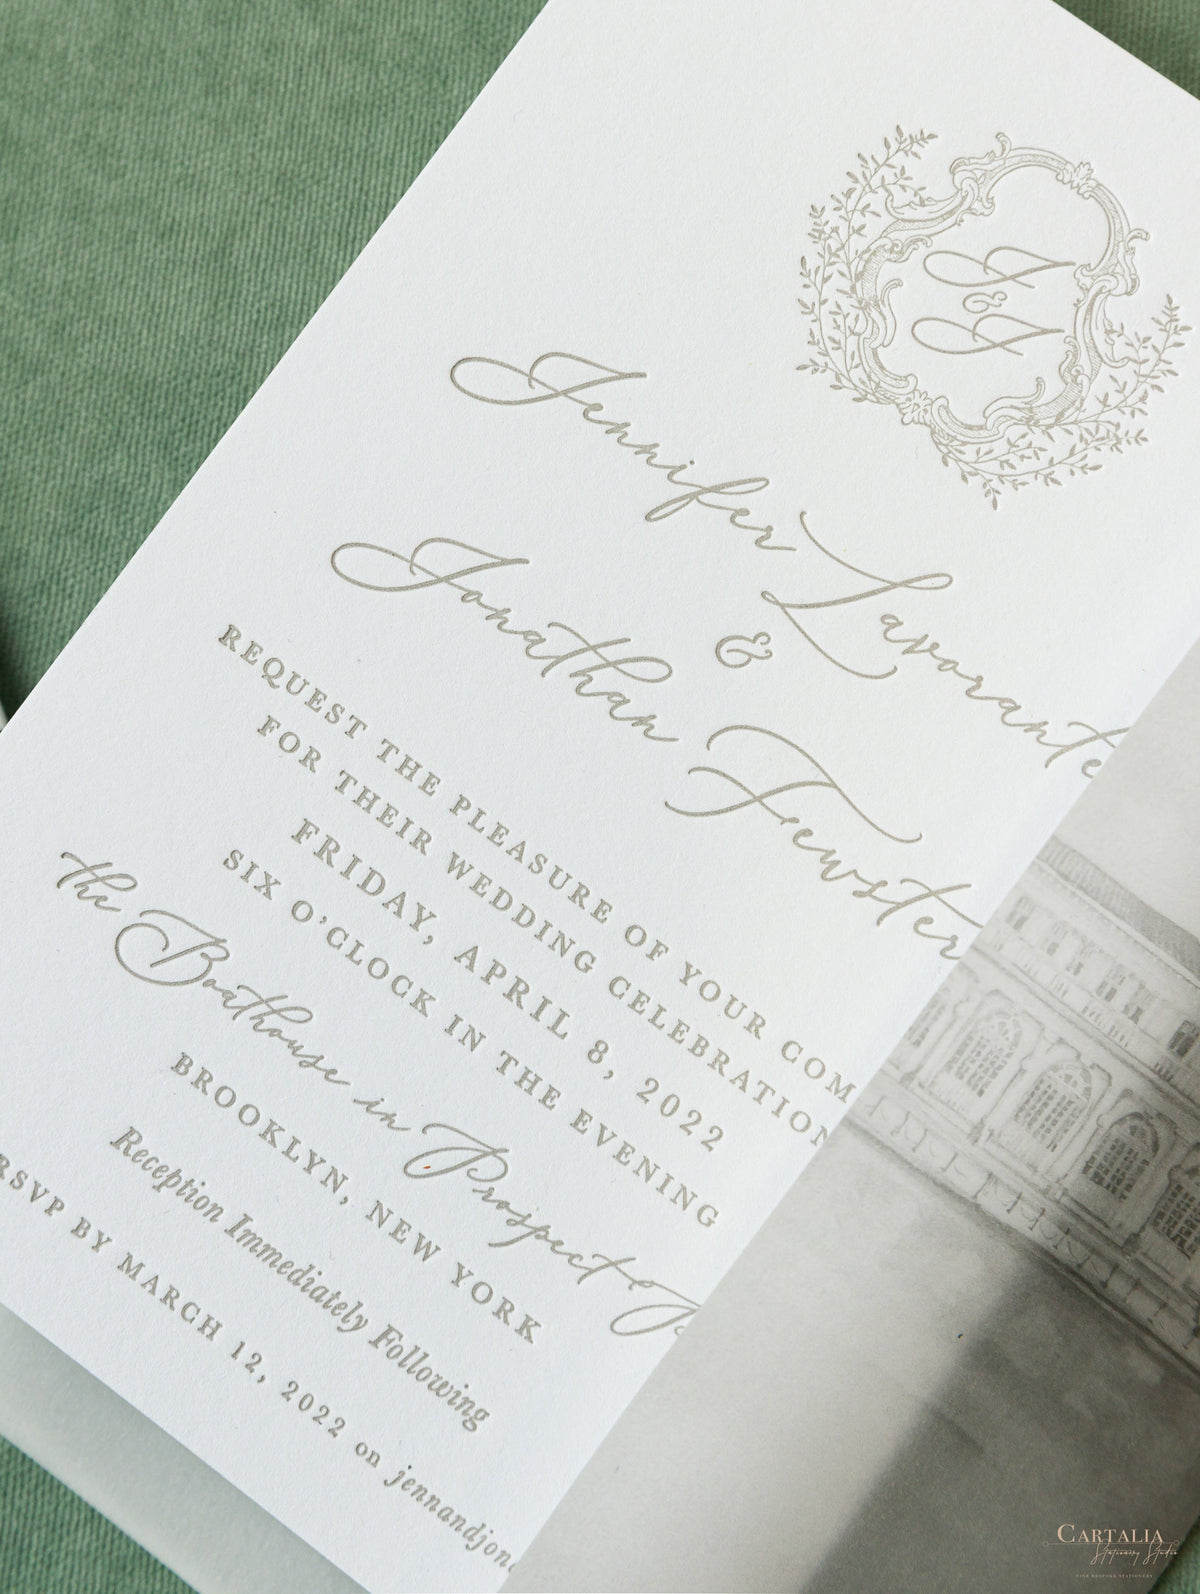 J
&
J
Jennifer Lavorante
&
Jonathan Fewster
REQUEST THE PLEASURE OF YOUR COM
FOR THEIR WEDDING CELEBRATION
FRIDAY, APRIL 8, 2022
SIX O'CLOCK IN THE EVENING
the Boathouse in Prospect
BROOKLYN, NEW YORK
Reception Immediately Following
RSVP BY MARCH 12, 2022 on jennandjon
CARTALIA
Stationery Studio
FINE BESPOKE STATIONERY